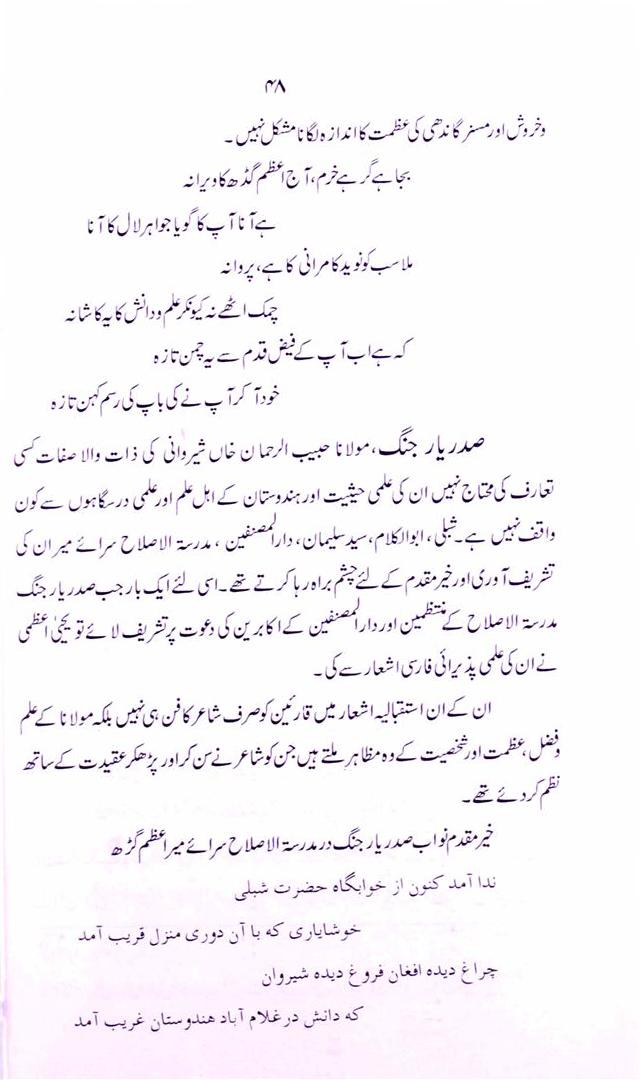 ۴۸
وخروش اور مسز گاندھی کی عظمت کا اندازہ لگانا مشکل نہیں۔
بجا ہے گر ہے خرم، آج اعظم گڈھ کا ویرانہ
ہے آنا آپ کا گویا جواہر لال کا آنا
ملا سب کو نوید کامرانی کا ہے، پروانہ
چمک اٹھے نہ کیونکر علم ودانش کا یہ کاشانہ
کہ ہے اب آپ کے فیض قدم سے یہ چمن تازہ
خود آکر آپ نے کی باپ کی رسم کہن تازہ
صدر یار جنگ، مولانا حبیب الرحمان خاں شیروانی کی ذات والا صفات کسی
تعارف کی محتاج نہیں ان کی علمی حیثیت اور ہندوستان کے اہل علم اور علمی درسگاہوں سے کون
واقف نہیں ہے۔ شبلی، ابوالکلام، سید سلیمان، دارالمصنفین، مدرسۃ الاصلاح سرائے میر ان کی
تشریف آوری اور خیر مقدم کے لئے چشم براہ رہا کرتے تھے۔ اسی لئے ایک بار جب صدر یار جنگ
مدرسۃ الاصلاح کے منتظمین اور دارالمصنفین کے اکابرین کی دعوت پر تشریف لائے تو یحیٰی اعظمی
نے ان کی علمی پذیرائی فارسی اشعار سے کی۔
ان کے ان استقبالیہ اشعار میں قارئین کو صرف شاعر کا فن ہی نہیں بلکہ مولانا کے علم
وفضل، عظمت اور شخصیت کے وہ مظاہر ملتے ہیں جن کو شاعر نے سن کر اور پڑھکر عقیدت کے ساتھ
نظم کر دئے تھے۔
خیر مقدم نواب صدر یار جنگ در مدرسۃ الاصلاح سرائے میر اعظم گڑھ
ندا آمد کنون از خوابگاه حضرت شبلی
خوشایاری که با آن دوری منزل قریب آمد
چراغ دیده افغان فروغ دیده شیروان
که دانش در غلام آباد هندوستان غریب آمد